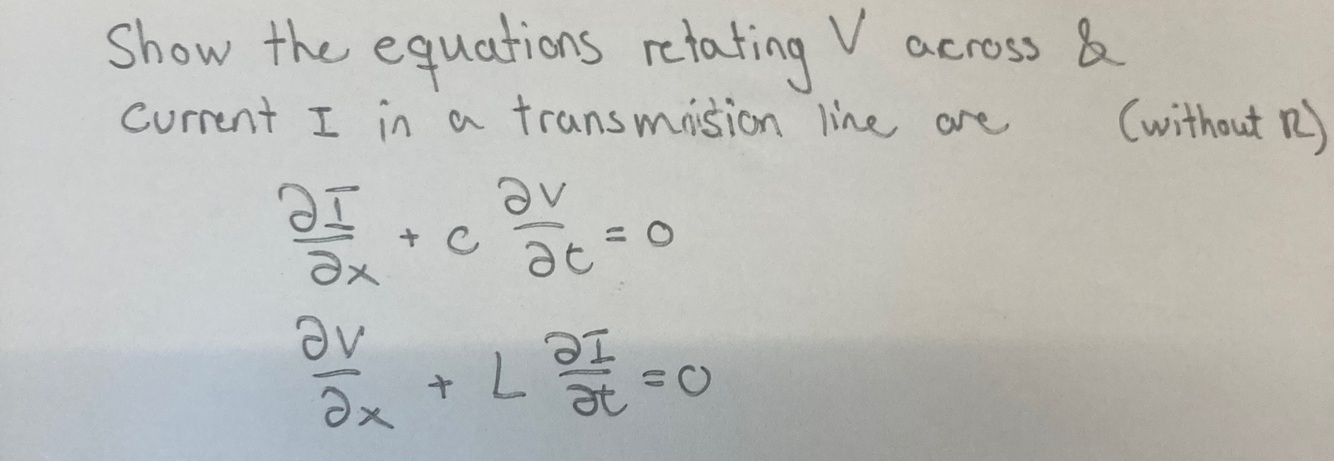 Show the equations retating V across &
current I in a transmission line are (without R)
∂I/∂x + C ∂V/∂t = 0
∂V/∂x + L ∂I/∂t = 0